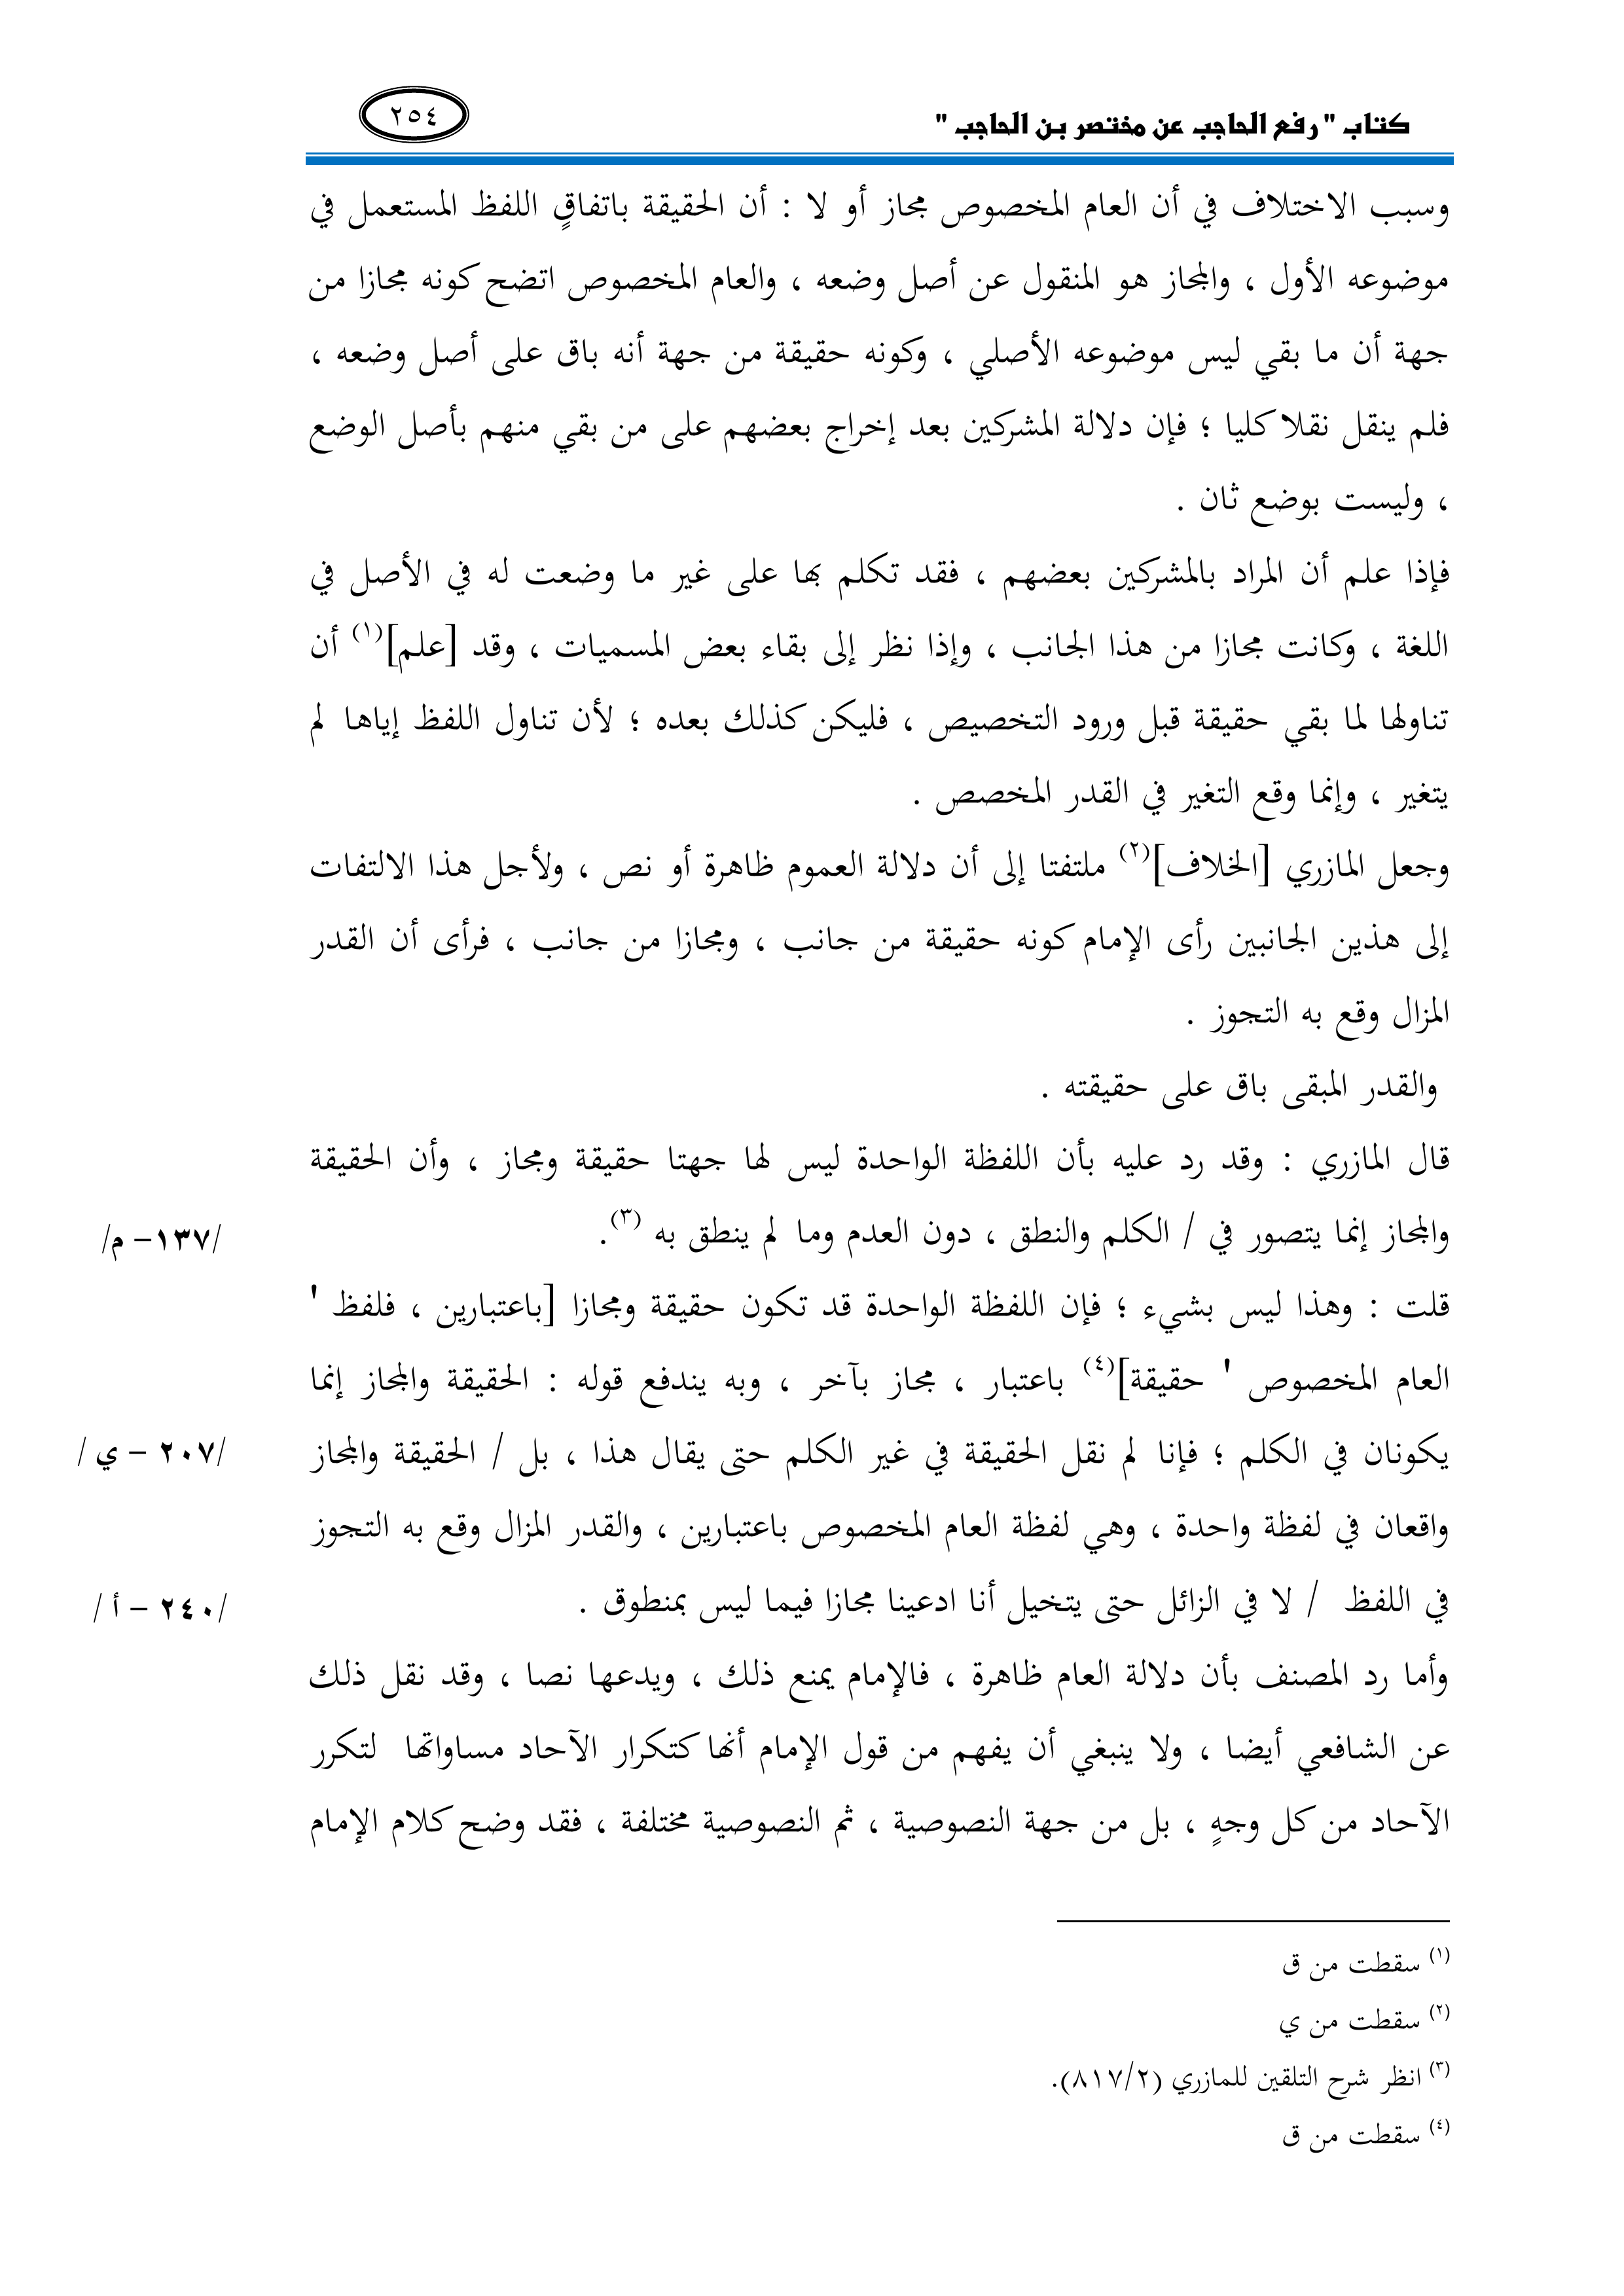 كتاب " رفع الحاجب عن مختصر بن الحاجب "
٢٥٤
وسبب الاختلاف في أن العام المخصوص مجاز أو لا : أن الحقيقة باتفاقٍ اللفظ المستعمل في
موضوعه الأول ، والمجاز هو المنقول عن أصل وضعه ، والعام المخصوص اتضح كونه مجازا من
جهة أن ما بقي ليس موضوعه الأصلي ، وكونه حقيقة من جهة أنه باق على أصل وضعه ،
فلم ينقل نقلا كليا ؛ فإن دلالة المشركين بعد إخراج بعضهم على من بقي منهم بأصل الوضع
، وليست بوضع ثان .
فإذا علم أن المراد بالمشركين بعضهم ، فقد تكلم بها على غير ما وضعت له في الأصل في
اللغة ، وكانت مجازا من هذا الجانب ، وإذا نظر إلى بقاء بعض المسميات ، وقد [علم](١) أن
تناولها لما بقي حقيقة قبل ورود التخصيص ، فليكن كذلك بعده ؛ لأن تناول اللفظ إياها لم
يتغير ، وإنما وقع التغير في القدر المخصص .
وجعل المازري [الخلاف](٢) ملتفتا إلى أن دلالة العموم ظاهرة أو نص ، ولأجل هذا الالتفات
إلى هذين الجانبين رأى الإمام كونه حقيقة من جانب ، ومجازا من جانب ، فرأى أن القدر
المزال وقع به التجوز .
والقدر المبقى باق على حقيقته .
قال المازري : وقد رد عليه بأن اللفظة الواحدة ليس لها جهتا حقيقة ومجاز ، وأن الحقيقة
والمجاز إنما يتصور في / الكلم والنطق ، دون العدم وما لم ينطق به (٣).
/١٣٧– م/
قلت : وهذا ليس بشيء ؛ فإن اللفظة الواحدة قد تكون حقيقة ومجازا [باعتبارين ، فلفظ '
العام المخصوص ' حقيقة](٤) باعتبار ، مجاز بآخر ، وبه يندفع قوله : الحقيقة والمجاز إنما
يكونان في الكلم ؛ فإنا لم نقل الحقيقة في غير الكلم حتى يقال هذا ، بل / الحقيقة والمجاز
/٢٠٧ – ي /
واقعان في لفظة واحدة ، وهي لفظة العام المخصوص باعتبارين ، والقدر المزال وقع به التجوز
في اللفظ / لا في الزائل حتى يتخيل أنا ادعينا مجازا فيما ليس بمنطوق .
/٢٤٠ – أ /
وأما رد المصنف بأن دلالة العام ظاهرة ، فالإمام يمنع ذلك ، ويدعها نصا ، وقد نقل ذلك
عن الشافعي أيضا ، ولا ينبغي أن يفهم من قول الإمام أنها كتكرار الآحاد مساواتها لتكرر
الآحاد من كل وجهٍ ، بل من جهة النصوصية ، ثم النصوصية مختلفة ، فقد وضح كلام الإمام
(١) سقطت من ق
(٢) سقطت من ي
(٣) انظر شرح التلقين للمازري (٨١٧/٢).
(٤) سقطت من ق